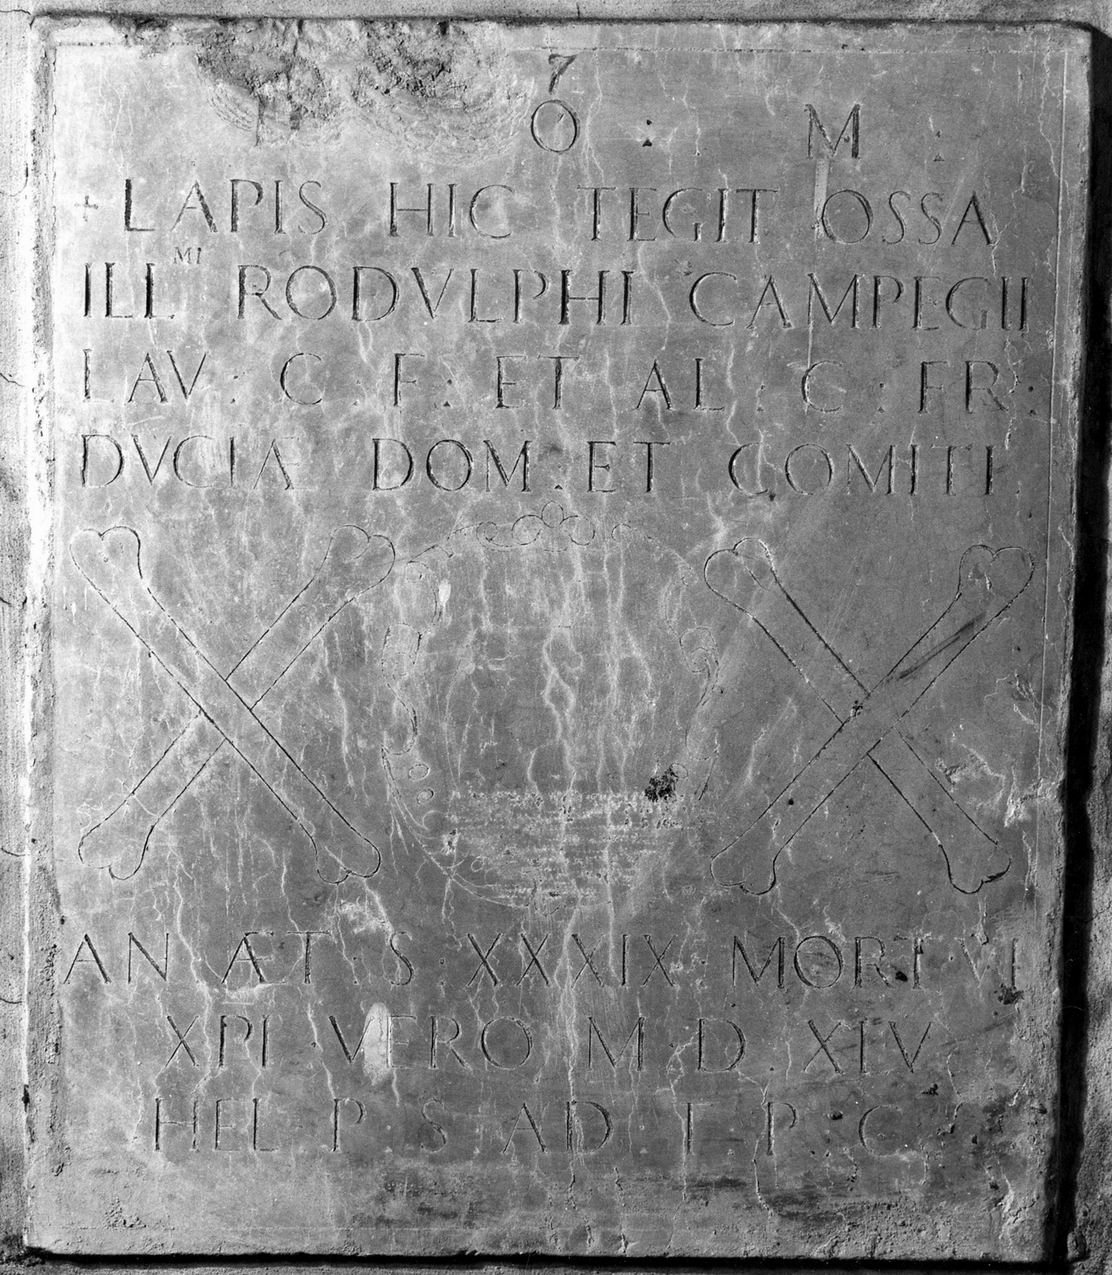 7
O · M ·
+ LAPIS HIC TEGIT OSSA
ILL MI RODVLPHI CAMPEGII
LAV : C · F : ET AL : C · FR :
DVCIA DOM · ET COMITI
AN ÆT · S · XXXIX · MORT · VI
XPI · VERO · M · D · XIV
HEL P S AD I P · C